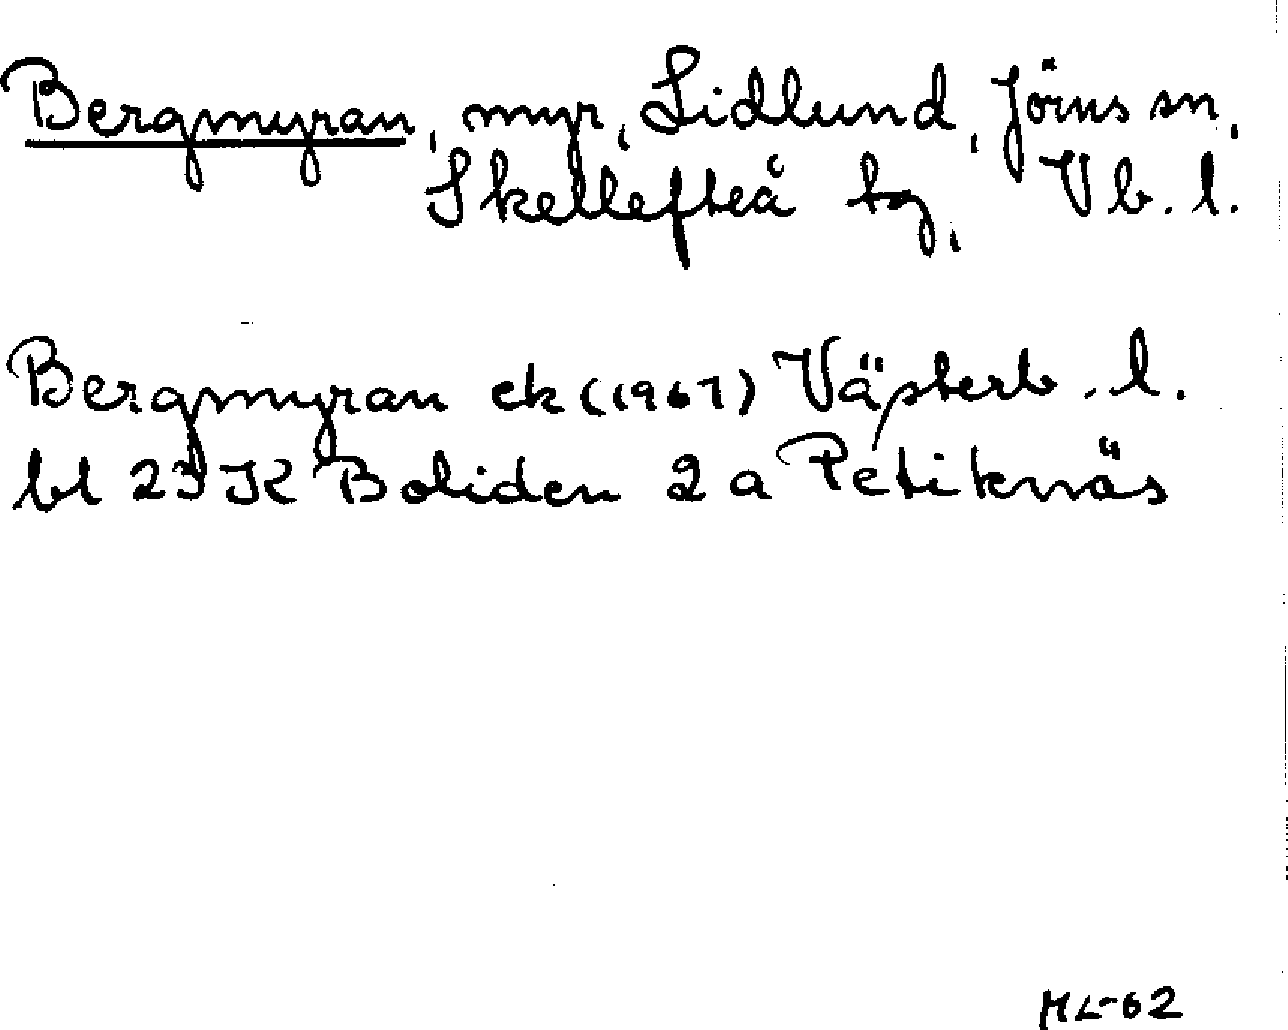 Bergmyran, myr, Lidlund, Jörns sn,
Skellefteå tg, Vb. l.
Bergmyran ek (1967) Västerb. l.
bl 23 K Boliden 2 a Petiknäs
ML-62